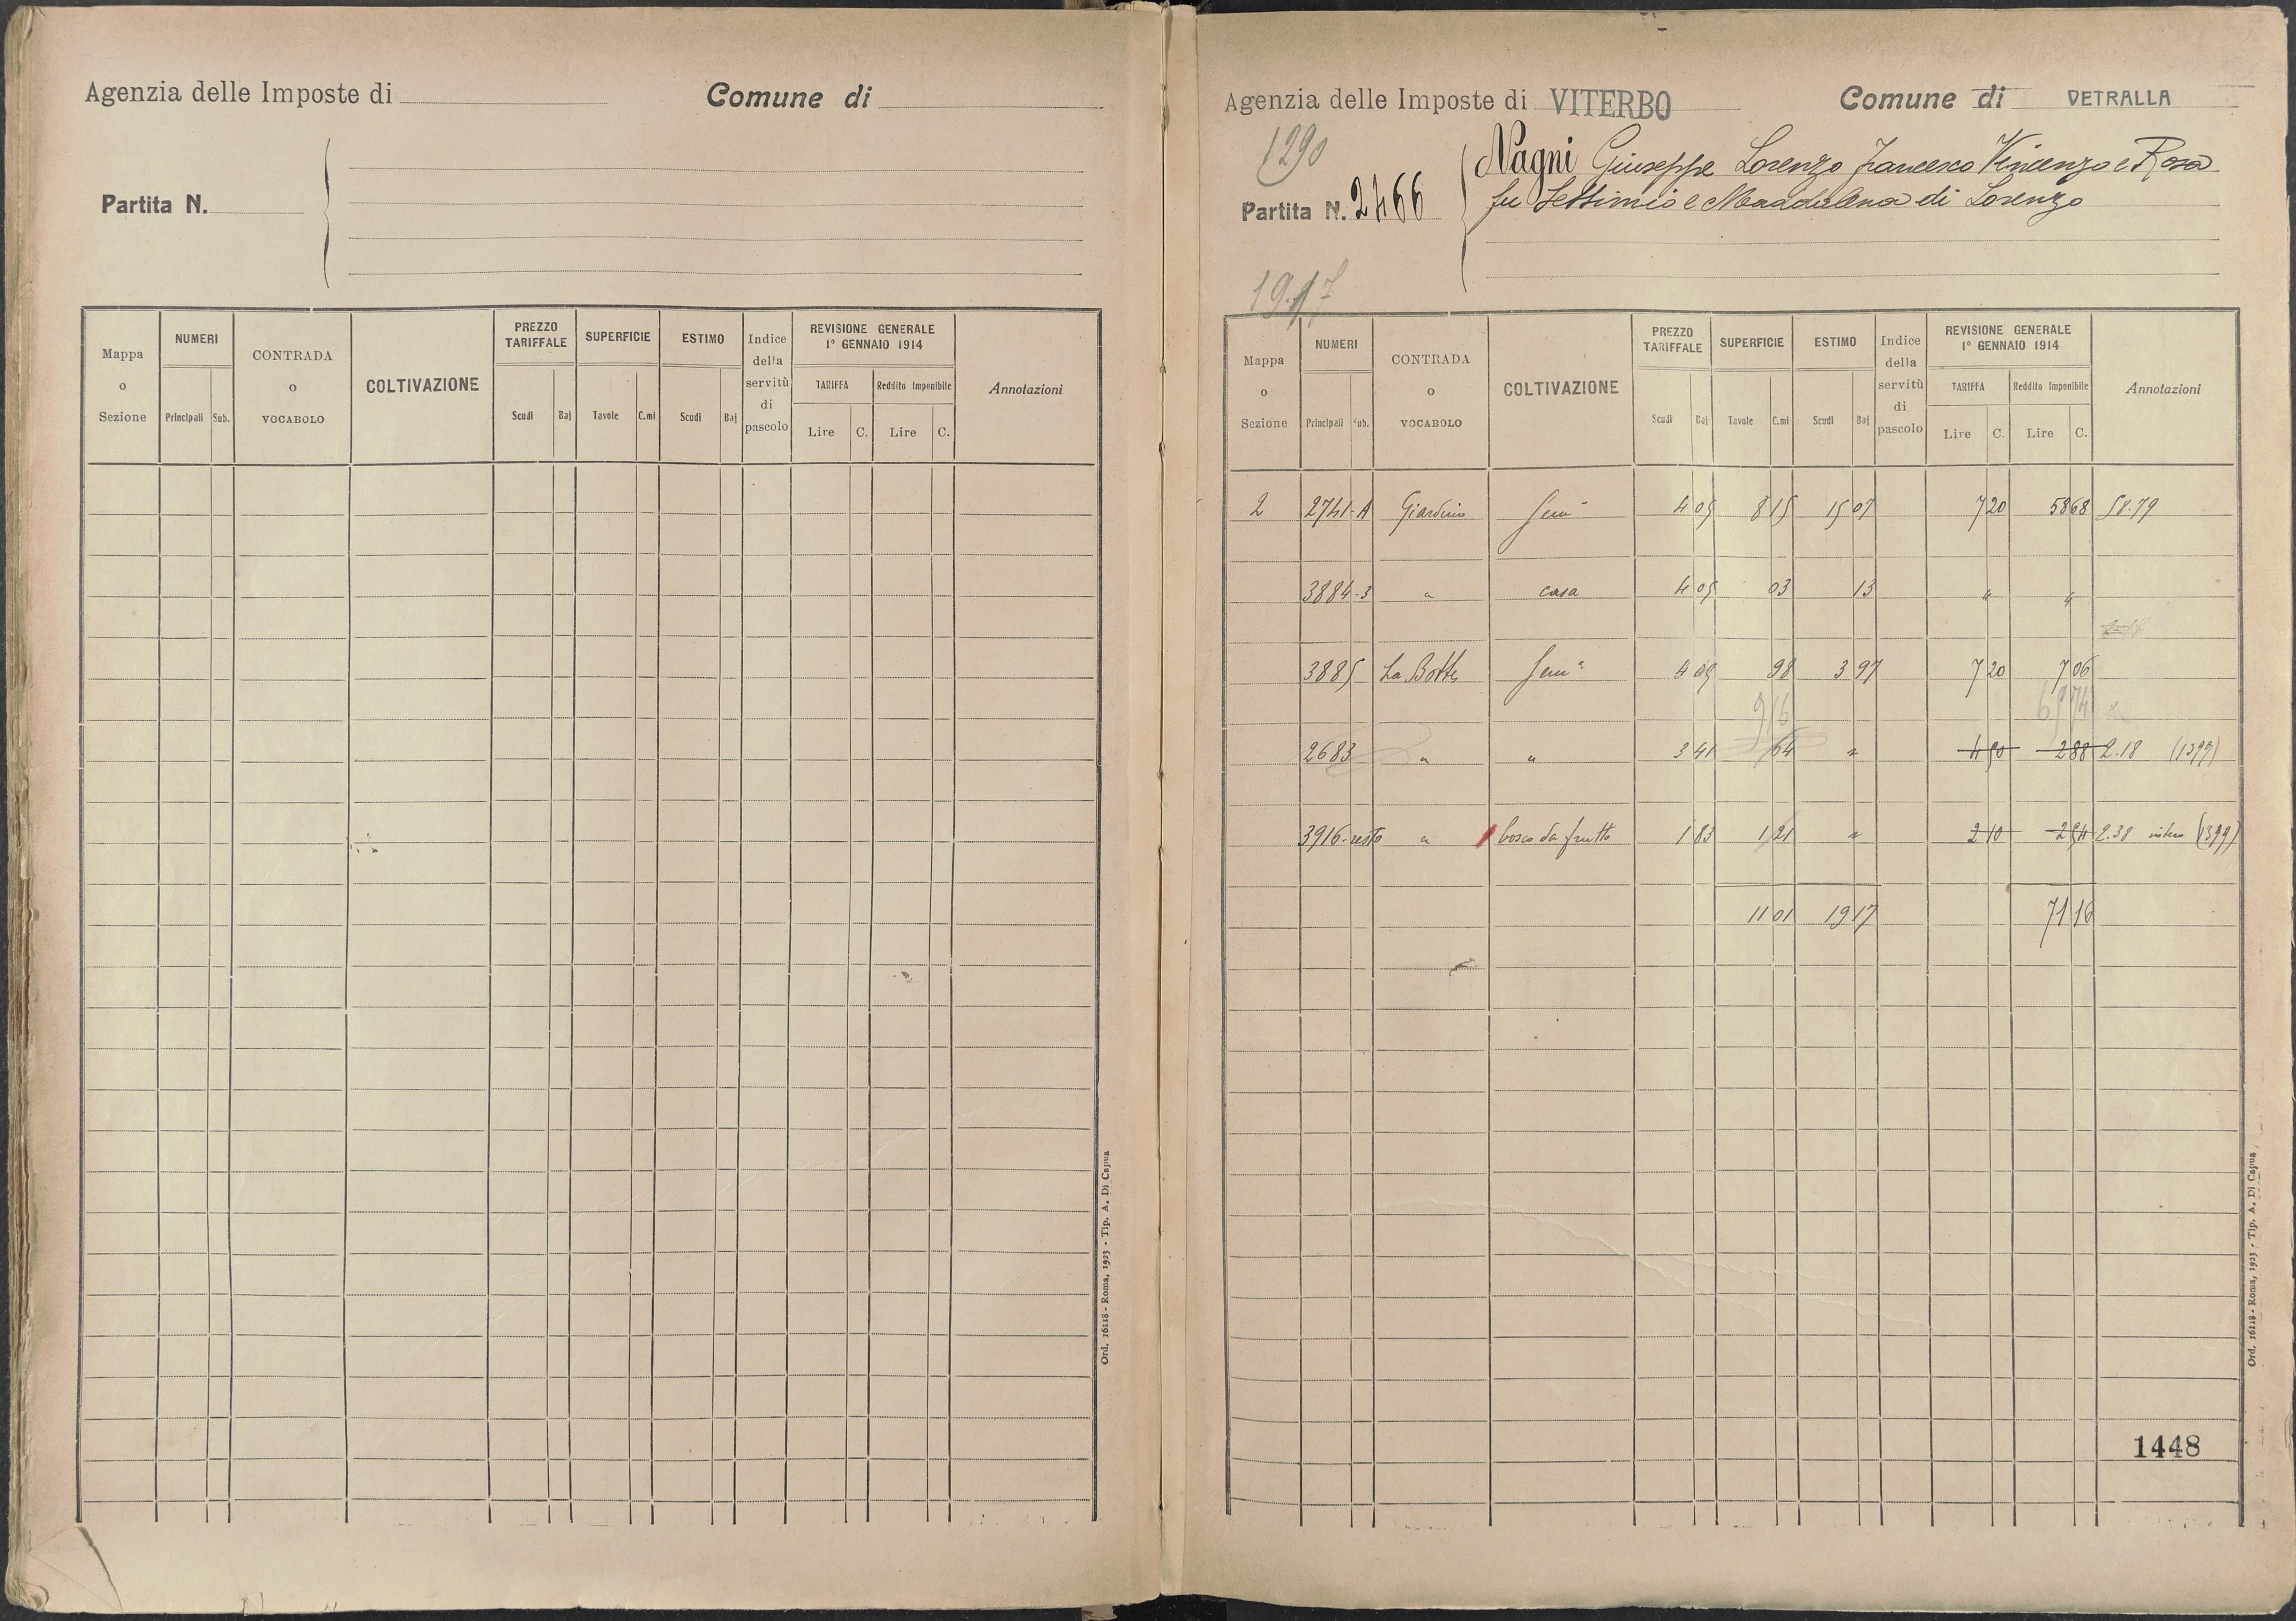 Agenzia delle Imposte di
Comune di
Partita N.
Mappa o Sezione
NUMERI
Principali Sub.
CONTRADA o VOCABOLO
COLTIVAZIONE
PREZZO TARIFFALE
Scudi Baj
SUPERFICIE
Tavole C.mi
ESTIMO
Scudi Baj
Indice della servitù di pascolo
REVISIONE GENERALE
1° GENNAIO 1914
TARIFFA
Lire C.
Reddito Imponibile
Lire C.
Annotazioni
Ord. 16118 - Roma, 1923 - Tip. A. Di Capua
Agenzia delle Imposte di VITERBO
Comune di VETRALLA
1290
Partita N. 2466
Nagni Giuseppe Lorenzo Francesco Vincenzo e Rosa
fu Settimio e Maddalena di Lorenzo
1917
Mappa o Sezione
NUMERI
Principali Sub.
CONTRADA o VOCABOLO
COLTIVAZIONE
PREZZO TARIFFALE
Scudi Baj
SUPERFICIE
Tavole C.mi
ESTIMO
Scudi Baj
Indice della servitù di pascolo
REVISIONE GENERALE
1° GENNAIO 1914
TARIFFA
Lire C.
Reddito Imponibile
Lire C.
Annotazioni
2 2741-A Giardino Sem 4 05 8 15 15 07 7 20 58 68 58.79
3884-3 " casa 4 05 03 13 " "
3885 La Botte Sem 4 05 98 3 97 7 20 7 06
9 16 65 74
2683 " " 3 41 64 " 4 50 2 88 2.18 (1399)
3916-resto " bosco da frutto 1 83 1 21 " 2 10 2 54 2.38 intero (1399)
11 01 19 17 71 16
1448
Ord. 16118 - Roma, 1923 - Tip. A. Di Capua